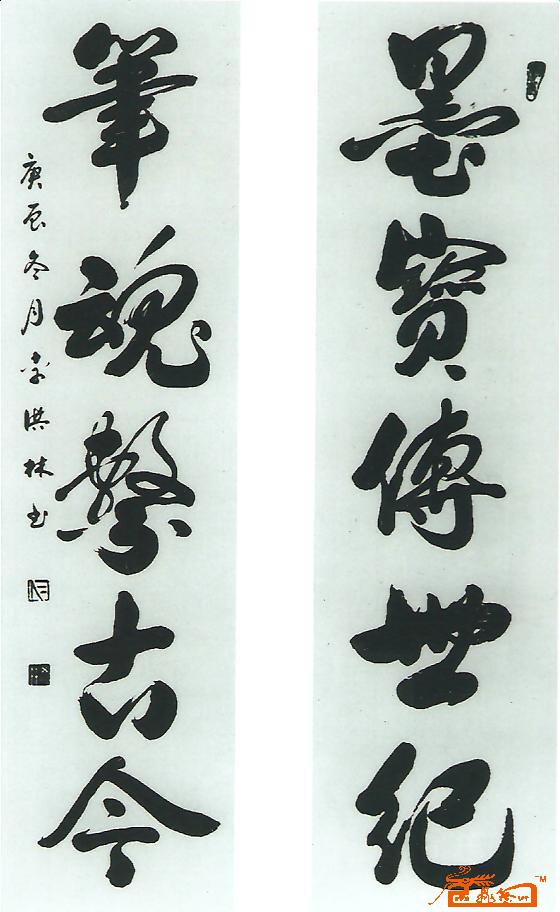 墨寶傳世紀
筆魂繫古今
庚辰冬月李洪林书